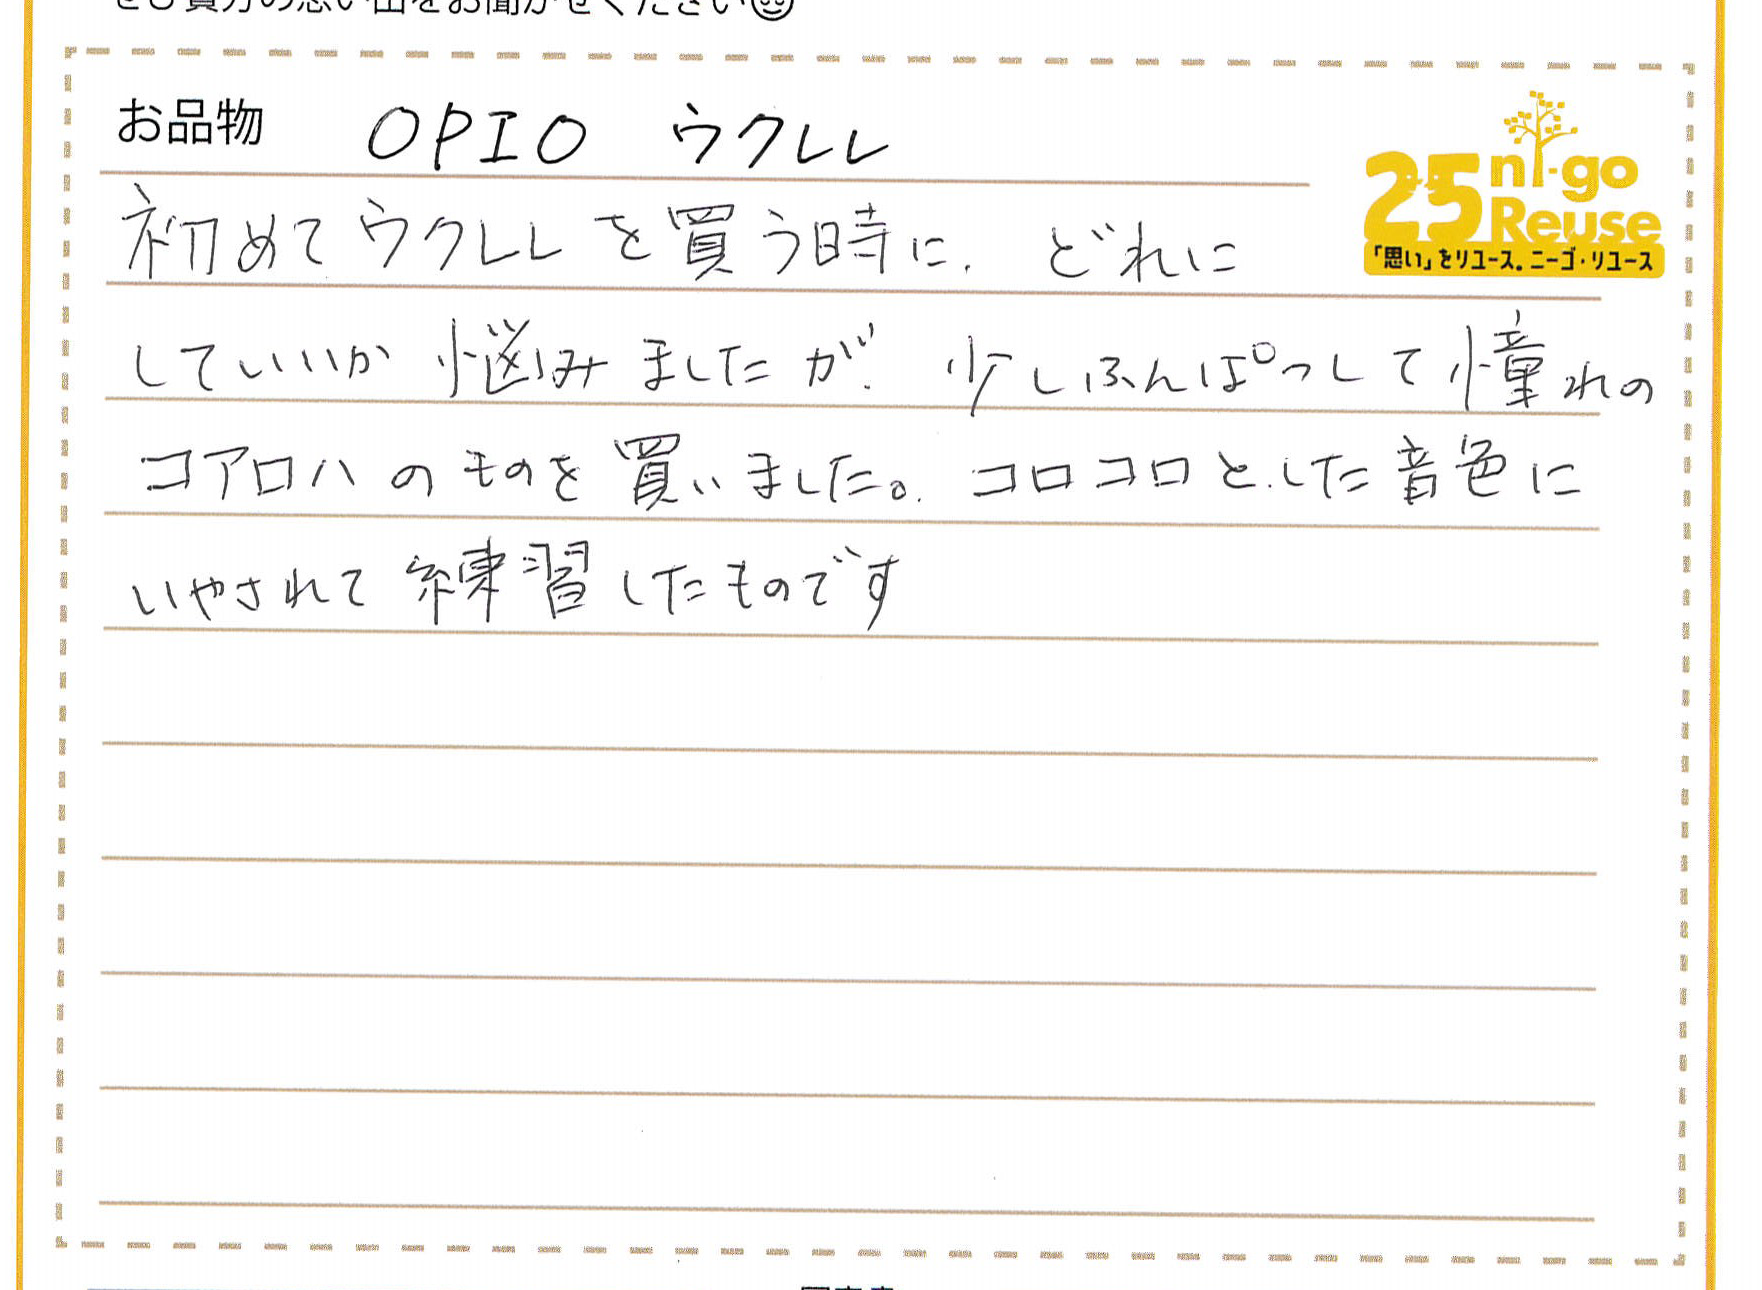 ぜひ貴方の思い出をお聞かせください
お品物 OPIO ウクレレ
25 ni-go Reuse
「思い」をリユース。ニーゴ・リユース
初めてウクレレを買う時に、どれに
していいか悩みましたが、少しふんぱつして憧れの
コアロハのものを買いました。コロコロとした音色に
いやされて練習したものです